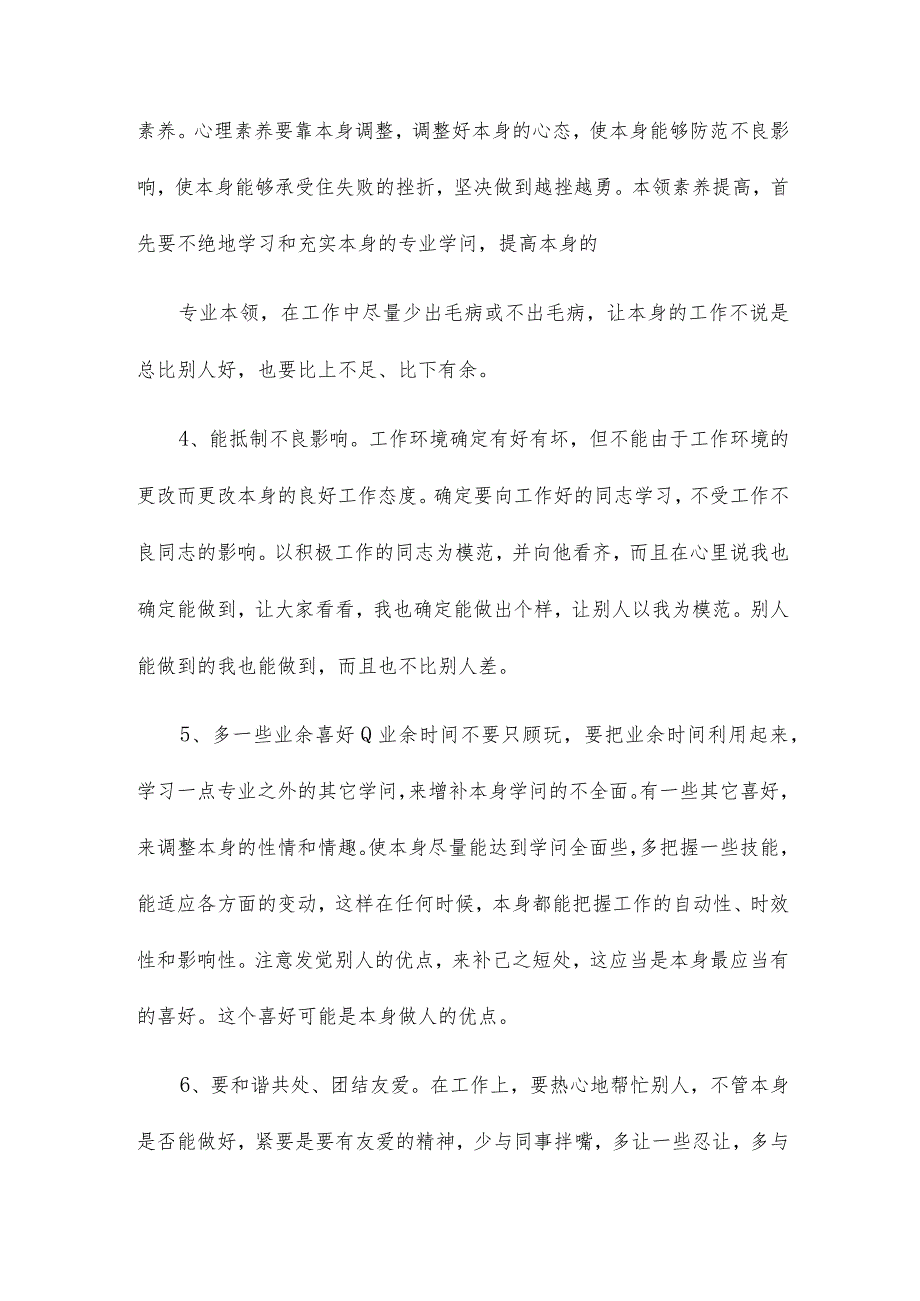 素养。心理素养要靠本身调整，调整好本身的心态，使本身能够防范不良影
响，使本身能够承受住失败的挫折，坚决做到越挫越勇。本领素养提高，首
先要不绝地学习和充实本身的专业学问，提高本身的
专业本领，在工作中尽量少出毛病或不出毛病，让本身的工作不说是
总比别人好，也要比上不足、比下有余。
4、能抵制不良影响。工作环境确定有好有坏，但不能由于工作环境的
更改而更改本身的良好工作态度。确定要向工作好的同志学习，不受工作不
良同志的影响。以积极工作的同志为模范，并向他看齐，而且在心里说我也
确定能做到，让大家看看，我也确定能做出个样，让别人以我为模范。别人
能做到的我也能做到，而且也不比别人差。
5、多一些业余喜好Q业余时间不要只顾玩，要把业余时间利用起来，
学习一点专业之外的其它学问，来增补本身学问的不全面。有一些其它喜好，
来调整本身的性情和情趣。使本身尽量能达到学问全面些，多把握一些技能，
能适应各方面的变动，这样在任何时候，本身都能把握工作的自动性、时效
性和影响性。注意发觉别人的优点，来补己之短处，这应当是本身最应当有
的喜好。这个喜好可能是本身做人的优点。
6、要和谐共处、团结友爱。在工作上，要热心地帮忙别人，不管本身
是否能做好，紧要是要有友爱的精神，少与同事拌嘴，多让一些忍让，多与